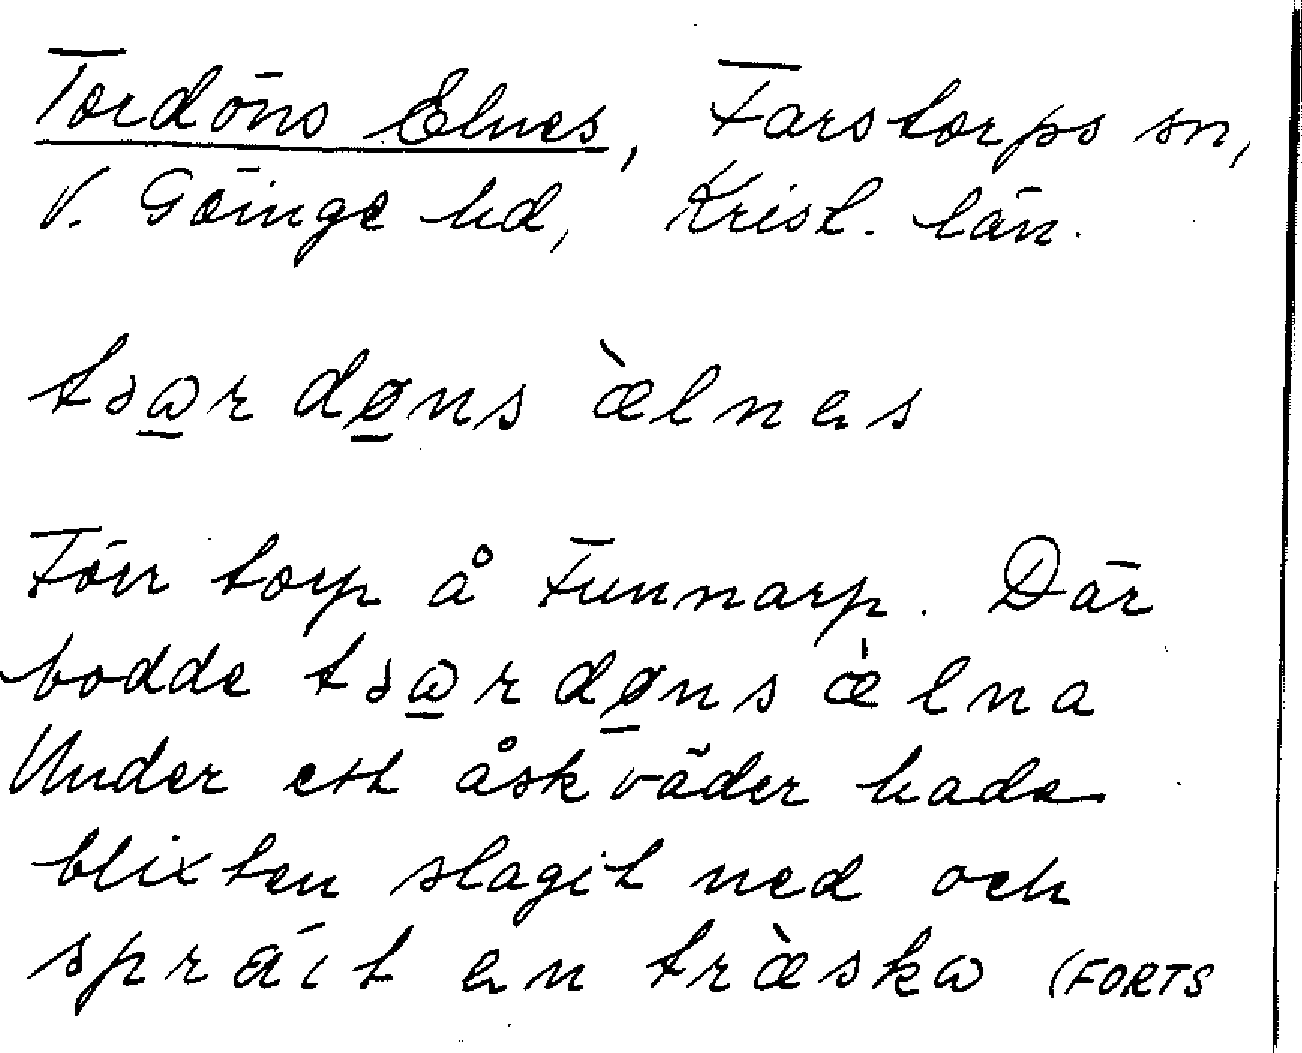 Tordöns Elnes, Farstorps sn,
V. Göinge hd, Krist. län.
tsɷrdøns ælnas
Förr torp å Funnarp. Där
bodde tsɷrdøns ælna
Under ett åskväder hade
blixten slagit ned och
en træskɷ (FORTS